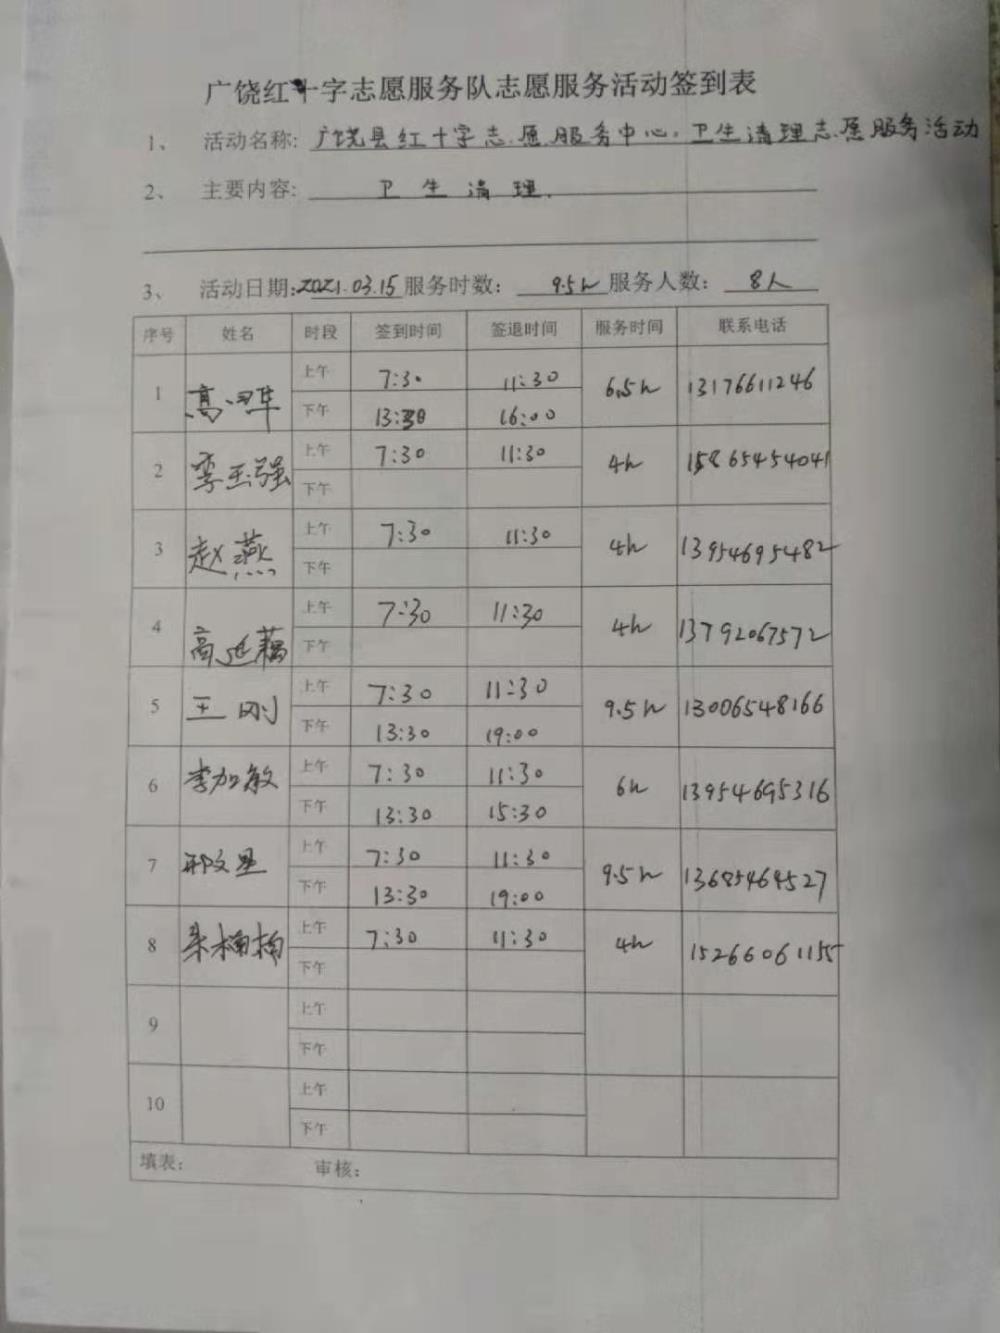 广饶红十字志愿服务队志愿服务活动签到表
1、 活动名称: 广饶县红十字志愿服务中心,卫生清理志愿服务活动
2、 主要内容: 卫生清理.
3、 活动日期:2021.03.15 服务时数: 9.5h 服务人数: 8人
序号 姓名 时段 签到时间 签退时间 服务时间 联系电话
1 高 上午 7:30 11:30 6.5h 13176611246
下午 13:30 16:00
2 李玉强 上午 7:30 11:30 4h 15865454041
下午
3 赵燕 上午 7:30 11:30 4h 13954695482
下午
4 高延藕 上午 7:30 11:30 4h 13792067572
下午
5 王刚 上午 7:30 11:30 9.5h 13006548166
下午 13:30 19:00
6 李加敏 上午 7:30 11:30 6h 13954695316
下午 13:30 15:30
7 邢文星 上午 7:30 11:30 9.5h 13685464527
下午 13:30 19:00
8 朱楠楠 上午 7:30 11:30 4h 15266061155
下午
9 上午
下午
10 上午
下午
填表: 审核: